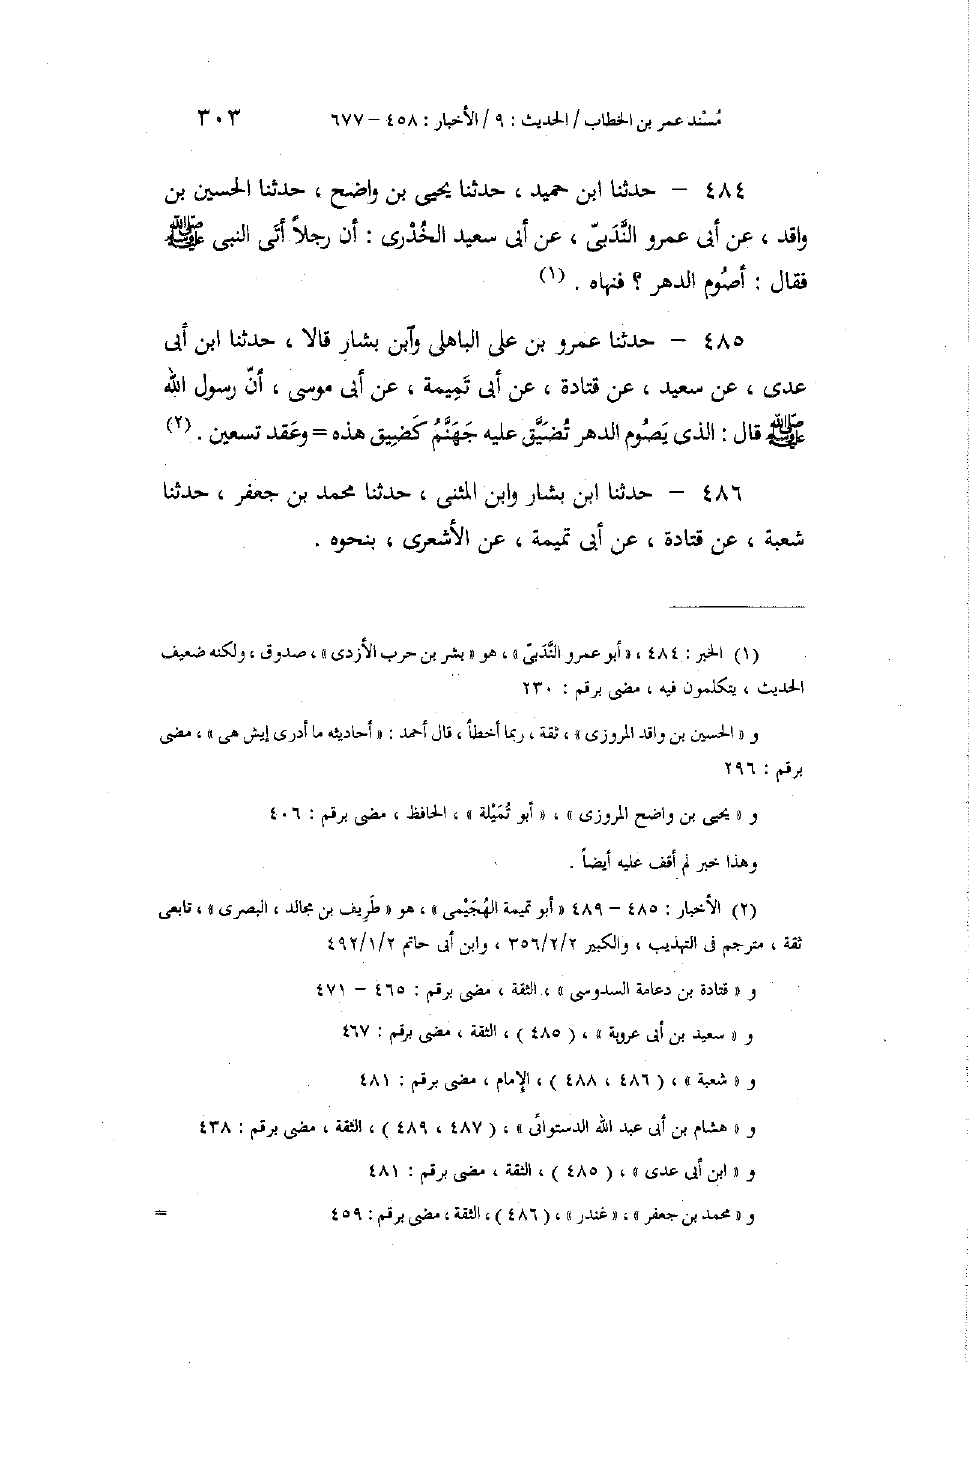 مُسْند عمر بن الخطاب / الحديث : ٩ / الأخبار : ٤٥٨ – ٦٧٧ ٣٠٣
٤٨٤ – حدثنا ابن حميد ، حدثنا يحيى بن واضح ، حدثنا الحسين بن
واقد ، عن أبى عمرو النَّدَبىّ ، عن أبى سعيد الخُدْرى : أن رجلاً أتَى النبى ﷺ
فقال : أصُوم الدهر ؟ فنهاه . (١)
٤٨٥ – حدثنا عمرو بن على الباهلى وآبن بشار قالا ، حدثنا ابن أبى
عدى ، عن سعيد ، عن قتادة ، عن أبى تَمِيمة ، عن أبى موسى ، أنّ رسول الله
ﷺ قال : الذى يَصُوم الدهر تُضَيَّق عليه جَهَنَّمُ كَضِيق هذه = وعَقد تسعين . (٢)
٤٨٦ – حدثنا ابن بشار وابن المثنى ، حدثنا محمد بن جعفر ، حدثنا
شعبة ، عن قتادة ، عن أبى تميمة ، عن الأشعرى ، بنحوه .
(١) الخبر : ٤٨٤ ، « أبو عمرو النَّدَبىّ » ، هو « بشر بن حرب الأزدى » ، صدوق ، ولكنه ضعيف
الحديث ، يتكلمون فيه ، مضى برقم : ٢٣٠
و « الحسين بن واقد المروزى » ، ثقة ، ربما أخطأ ، قال أحمد : « أحاديثه ما أدرى إيش هى » ، مضى
برقم : ٢٩٦
و « يحيى بن واضح المروزى » ، « أبو تُمَيْلة » ، الحافظ ، مضى برقم : ٤٠٦
وهذا خبر لم أقف عليه أيضاً .
(٢) الأخبار : ٤٨٥ – ٤٨٩ « أبو تميمة الهُجَيْمى » ، هو « طَرِيف بن مجالد ، البصرى » ، تابعى
ثقة ، مترجم فى التهذيب ، والكبير ٣٥٦/٢/٢ ، وابن أبى حاتم ٤٩٢/١/٢
و « قتادة بن دعامة السدوسى » ، الثقة ، مضى برقم : ٤٦٥ – ٤٧١
و « سعيد بن أبى عروبة » ، ( ٤٨٥ ) ، الثقة ، مضى برقم : ٤٦٧
و « شعبة » ، ( ٤٨٦ ، ٤٨٨ ) ، الإمام ، مضى برقم : ٤٨١
و « هشام بن أبى عبد الله الدستوائى » ، ( ٤٨٧ ، ٤٨٩ ) ، الثقة ، مضى برقم : ٤٣٨
و « ابن أبى عدى » ، ( ٤٨٥ ) ، الثقة ، مضى برقم : ٤٨١
و « محمد بن جعفر » ، « غندر » ، ( ٤٨٦ ) ، الثقة ، مضى برقم : ٤٥٩ =